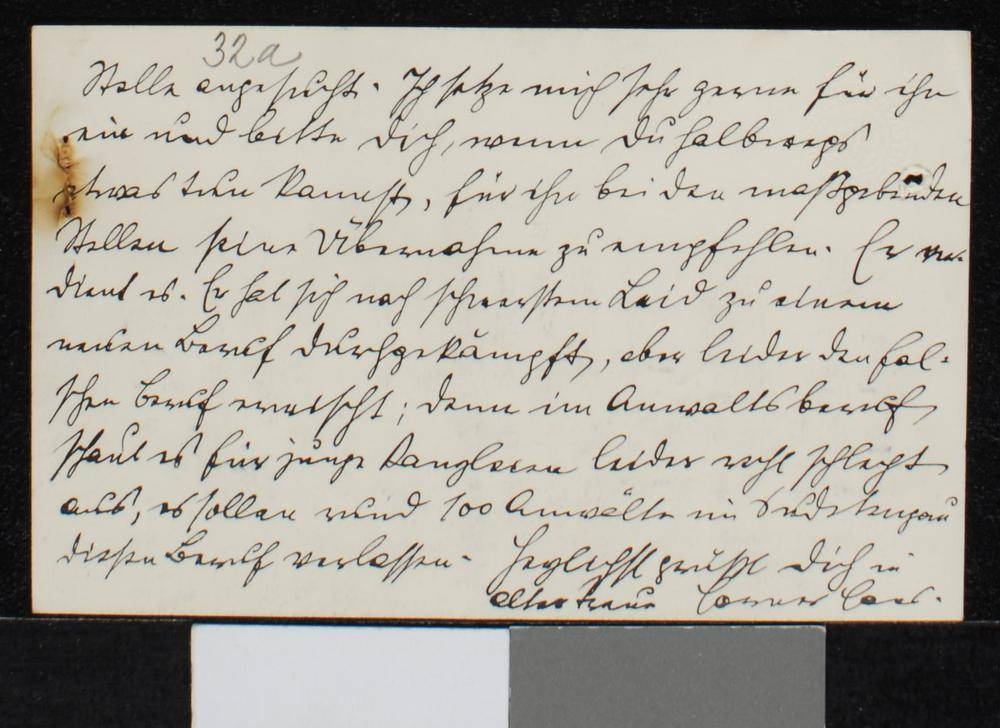 32a
Stelle angesucht. Ich setze mich sehr gerne für ihn
ein und bitte Dich, wenn Du halbwegs
etwas tun kannst, für ihn bei den maßgebenden
Stellen seine Übernahme zu empfehlen. Er ver-
dient es. Er hat sich nach schwerstem Leid zu einem
neuen Beruf durchgekämpft, aber leider den fal-
schen Beruf erwischt; denn im Anwaltsberuf
schaut es für junge leider recht schlecht
aus, es sollen rund 100 Anwälte im Sudetengau
diesen Beruf verlassen. Herzlichst grüßt Dich in
alter Treue